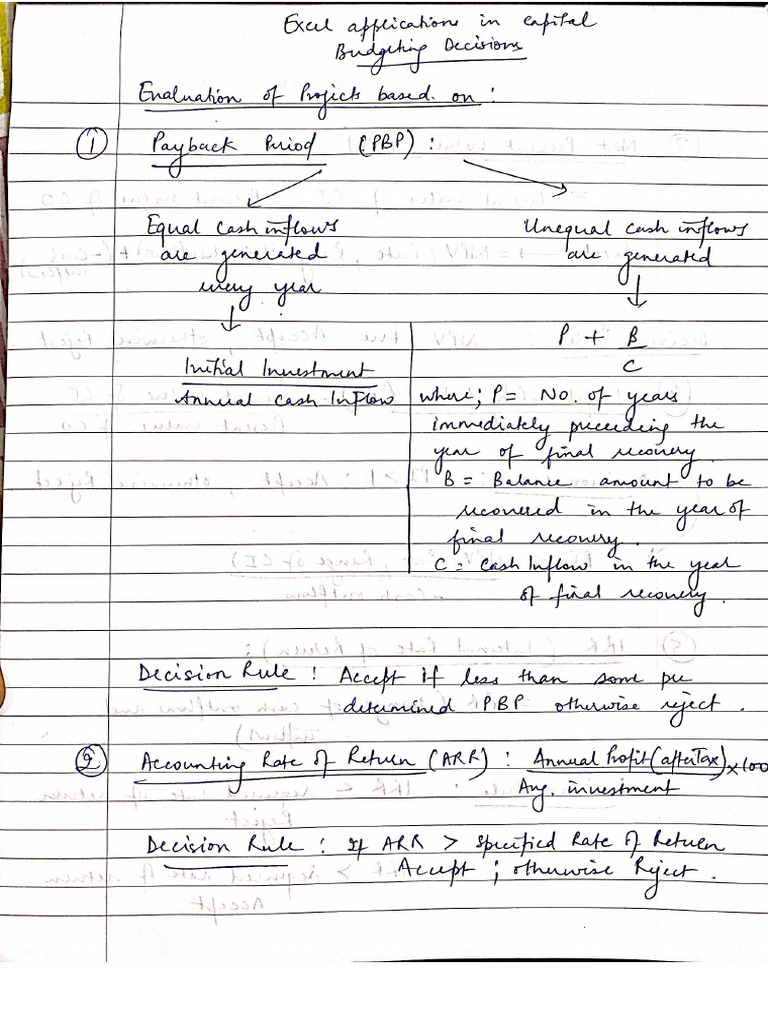 Excel applications in capital
Budgeting Decisions
Evaluation of Projects based on :
① Payback Period (PBP) :
Equal cash inflows
are generated
every year
Initial Investment
Annual cash Inflow
Unequal cash inflows
are generated
P + B
C
where; P = No. of years
immediately preceeding the
year of final recovery.
B = Balance amount to be
recovered in the year of
final recovery.
C = Cash Inflow in the year
of final recovery.
Decision Rule : Accept if less than some pre
determined PBP otherwise reject .
② Accounting Rate of Return (ARR) : Annual Profit (after Tax) × 100
Avg. investment
Decision Rule : If ARR > specified Rate of Return
Accept ; otherwise Reject .